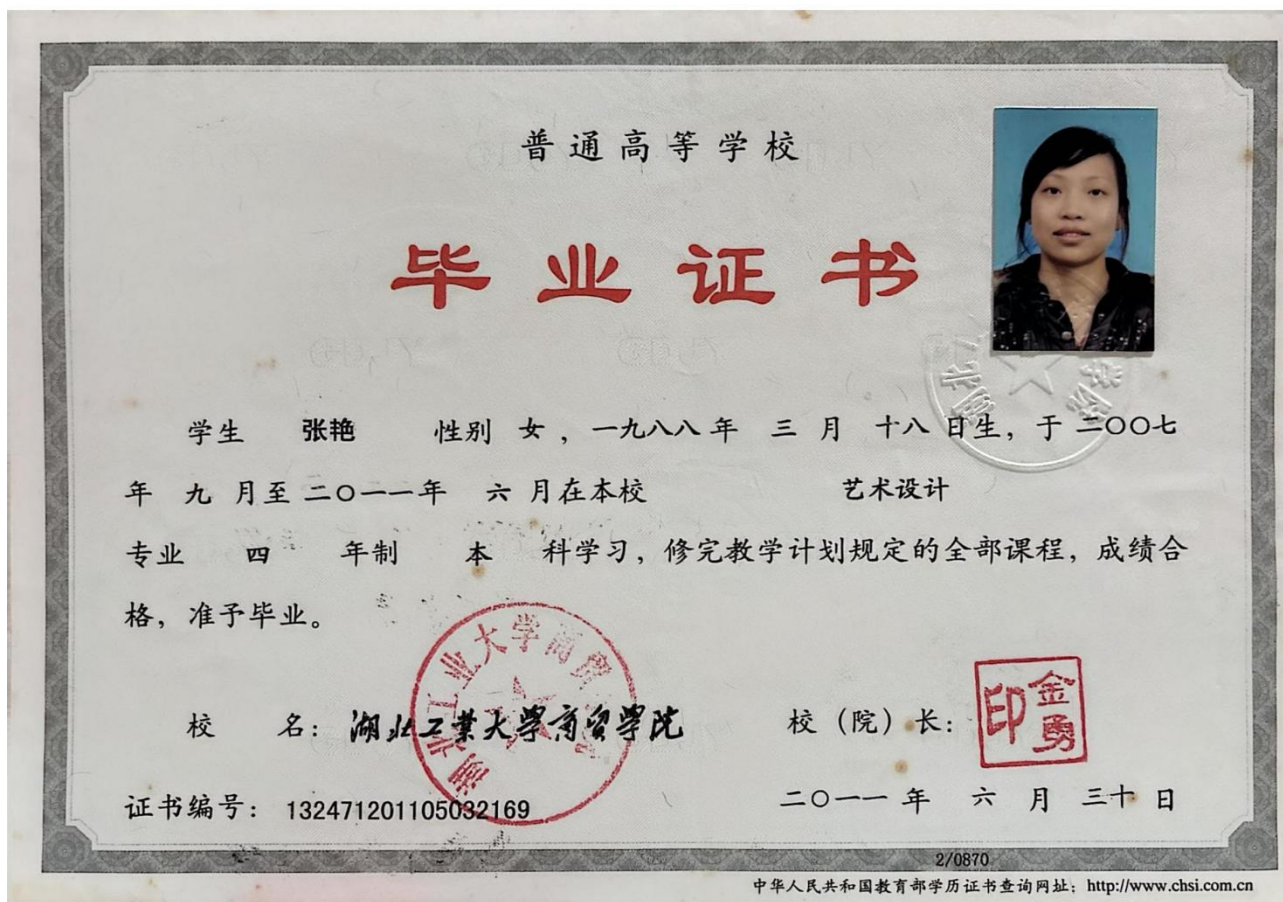 普通高等学校
毕业证书
学生 张艳 性别 女，一九八八年 三 月 十八 日生，于 二〇〇七
年 九 月至 二〇一一年 六 月在本校 艺术设计
专业 四 年制 本 科学习，修完教学计划规定的全部课程，成绩合
格，准予毕业。
湖北工业大学商贸
校 名：湖北工業大学商贸学院 校（院）长：
金勇印
证书编号：132471201105032169 二〇一一 年 六 月 三十 日
2/0870
中华人民共和国教育部学历证书查询网址：http://www.chsi.com.cn